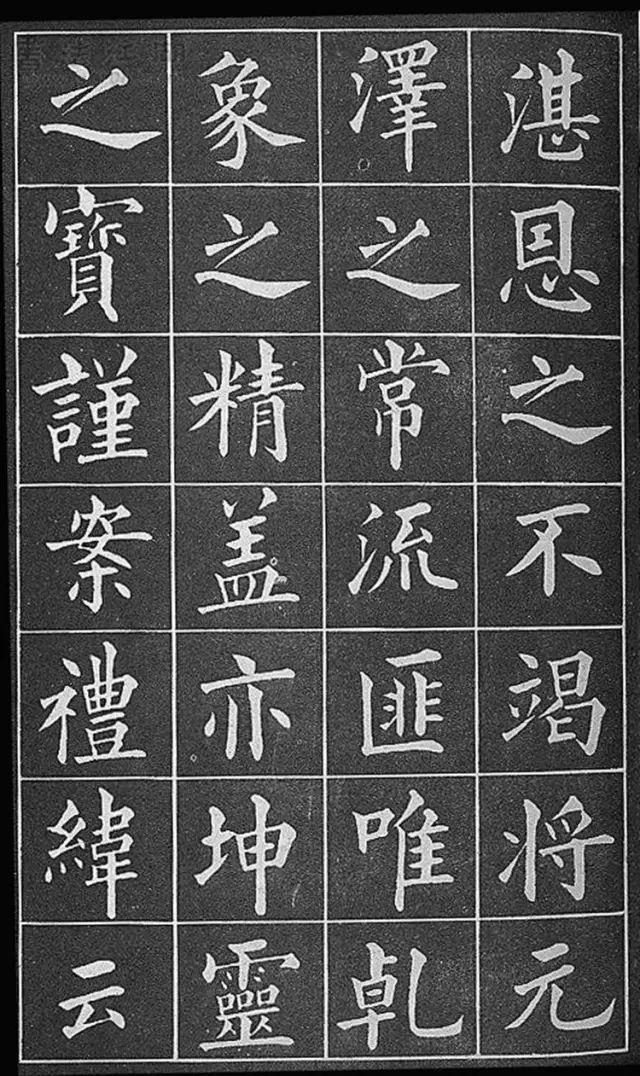 湛恩之不竭将元
澤之常流匪唯乹
象之精盖亦坤靈
之寶謹案禮緯云